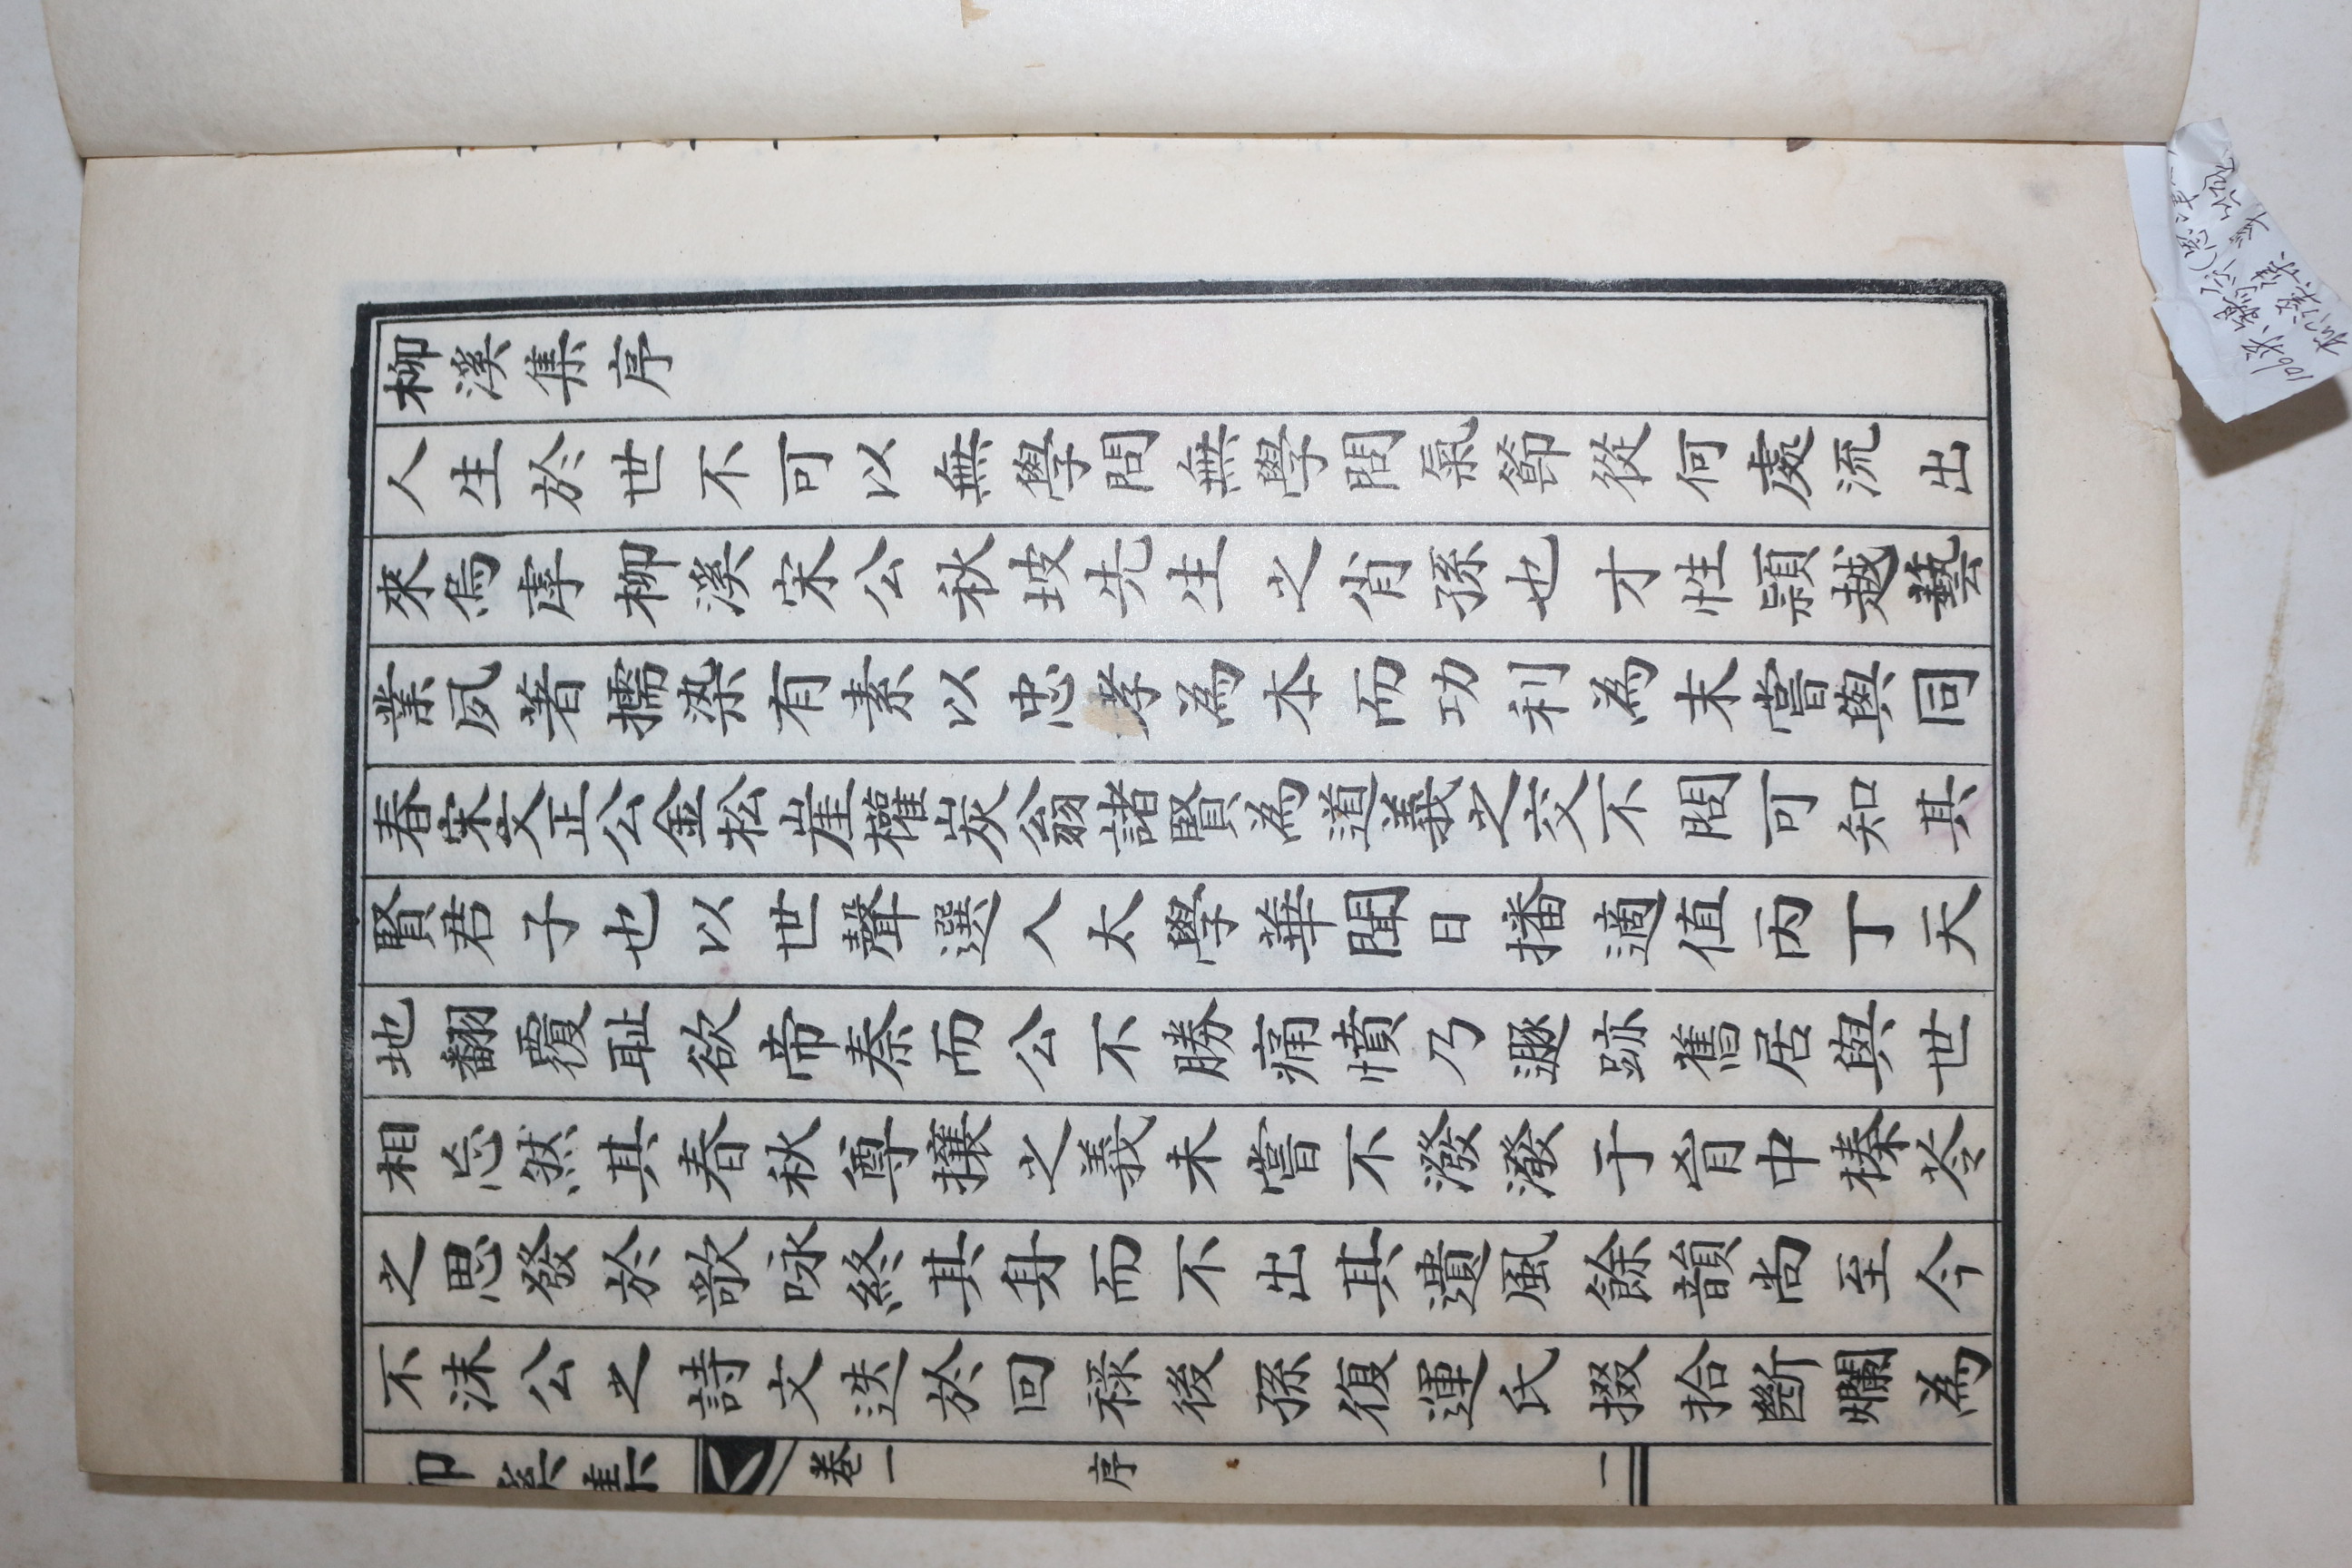 柳溪集序
人生於世不可以無學問無學問氣節從何處流出
來烏虖柳溪宋公秋坡先生之肖孫也才性頴越藝
業夙著擩染有素以忠孝為本而功利為末嘗與同
春宋文正公金松崖權炭翁諸賢為道義之交不問可知其
賢君子也以世聲選入太學華聞日播適值丙丁天
地翻覆恥欲帝秦而公不勝痛憤乃遯跡舊居與世
相忘然其春秋尊攘之義未嘗不潑潑于胷中榛苓
之思發於歌咏終其身而不出其遺風餘韻尚至今
不沫公之詩文迭於回祿後孫復運氏掇拾斷爛為
柳溪集
卷一
序
一
106宋錫
柳溪集